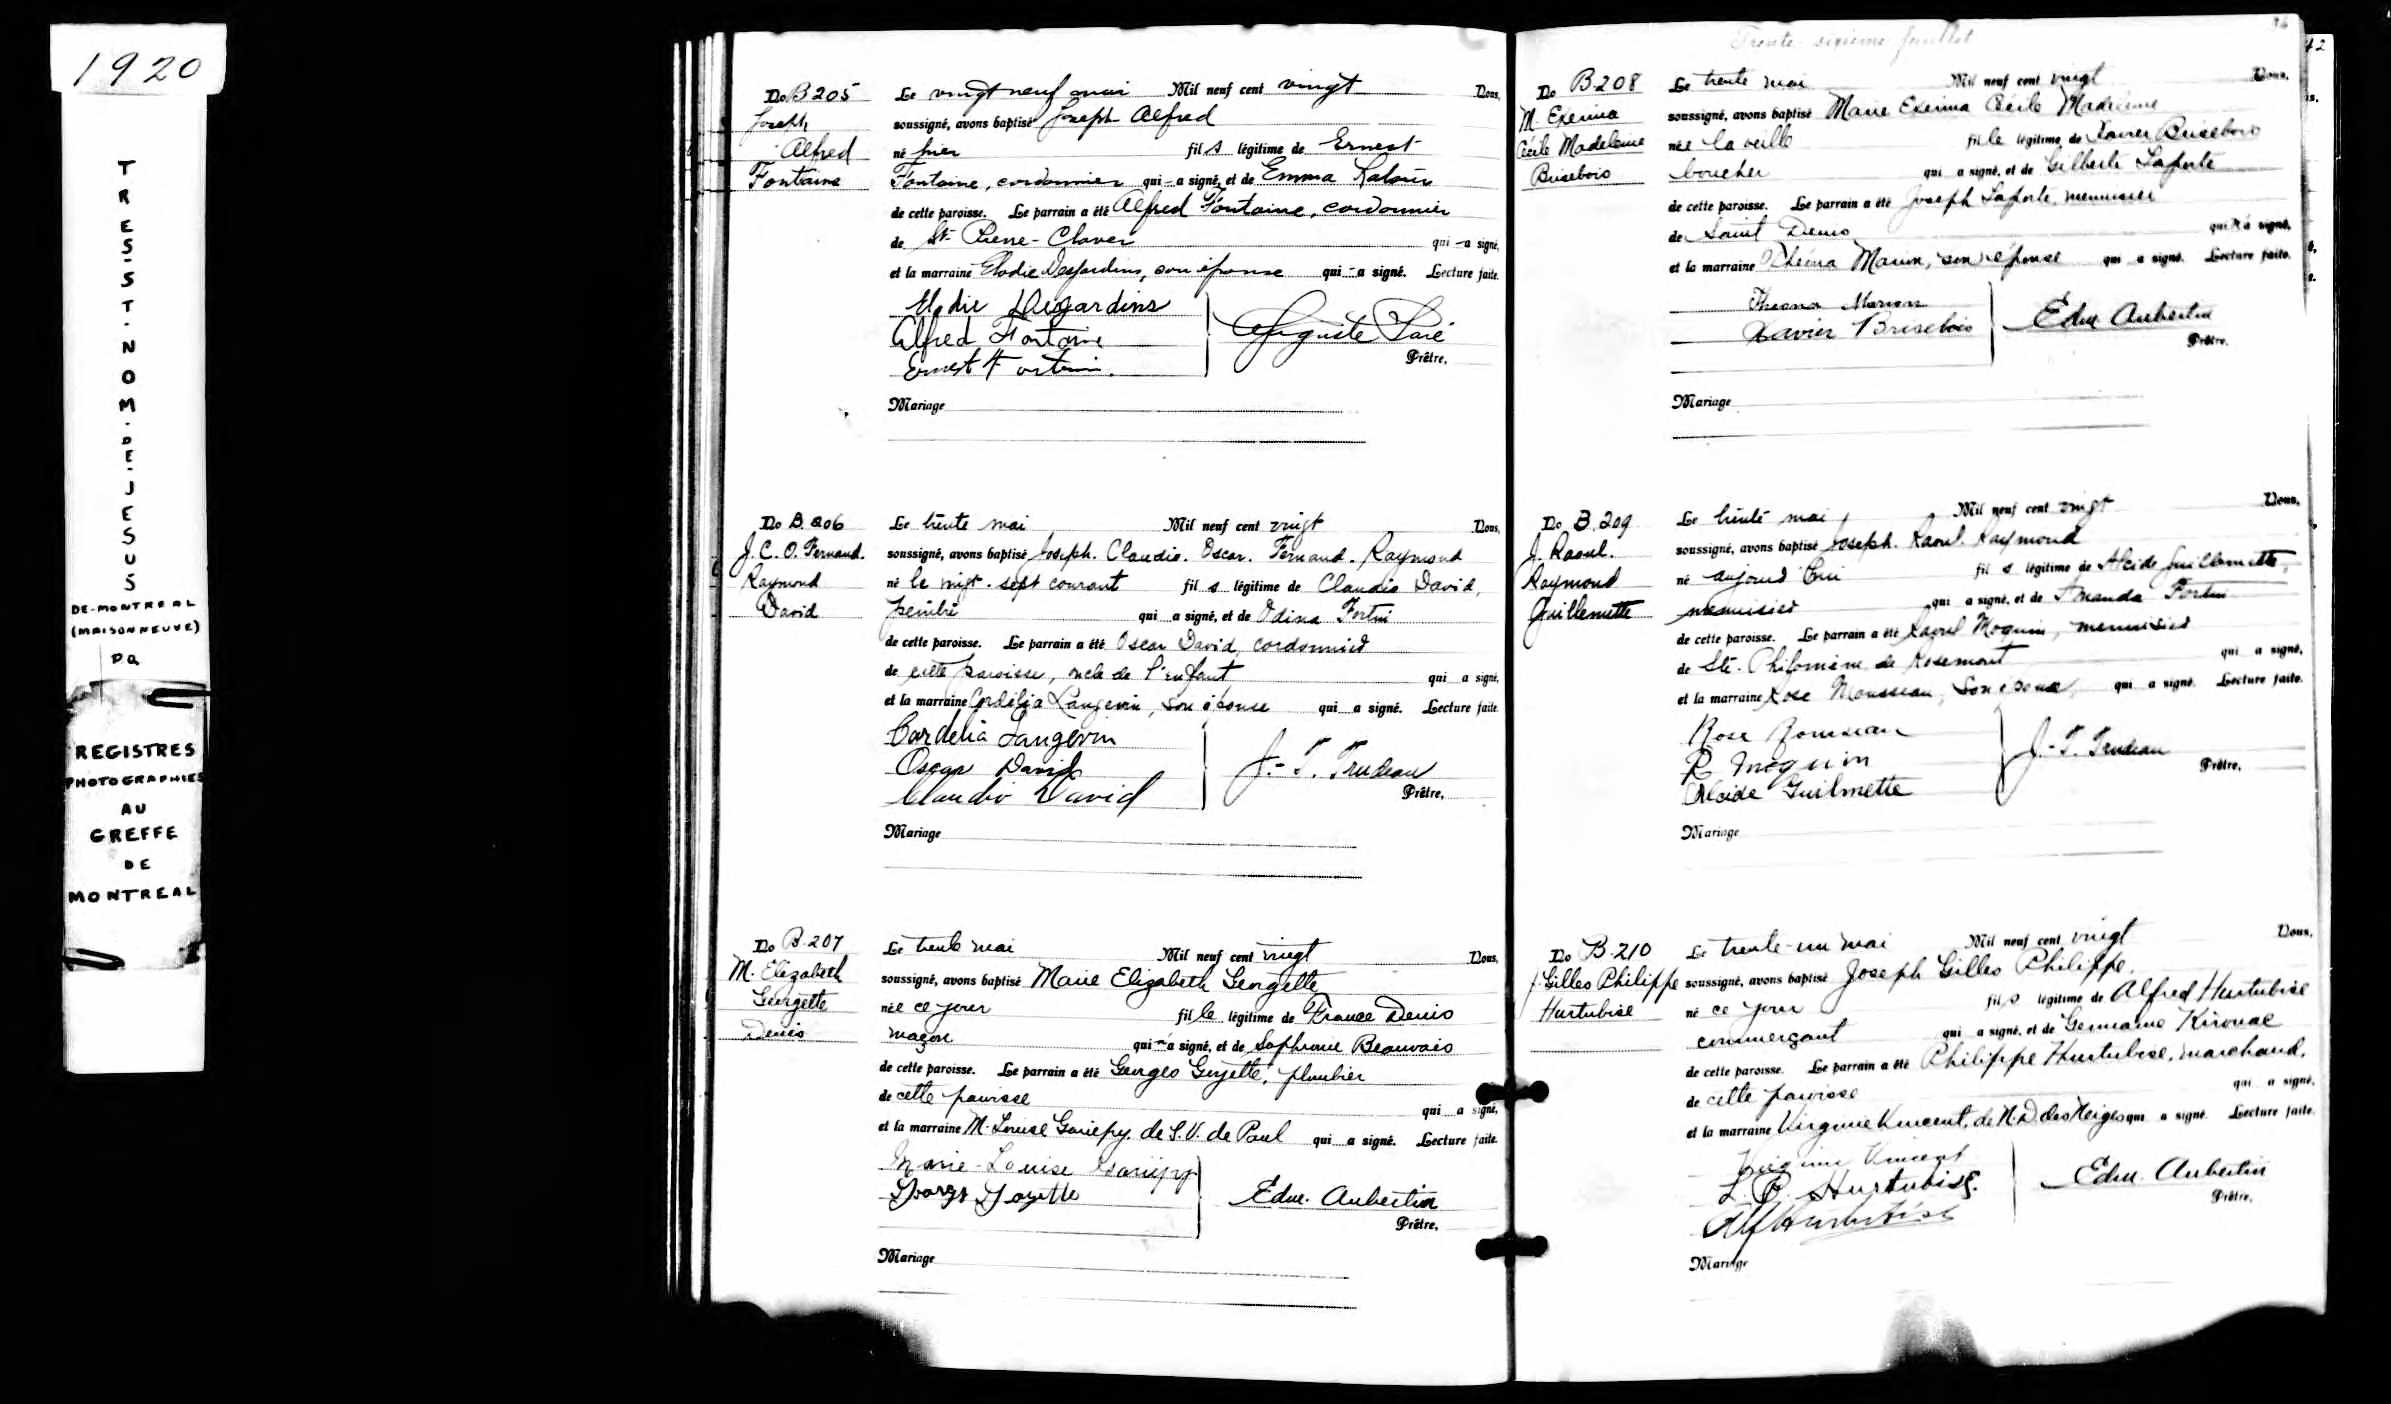 1920
TRES-ST-NOM-DE-JESUS
DE-MONTREAL
(MAISONNEUVE)
PQ
REGISTRES
PHOTOGRAPHIES
AU
GREFFE
DE
MONTREAL
No B205
Joseph
Alfred
Fontaine
Le vingt neuf mai Mil neuf cent vingt Nous,
soussigné, avons baptisé Joseph Alfred
né hier fils légitime de Ernest
Fontaine, cordonnier qui - a signé, et de Emma
de cette paroisse. Le parrain a été Alfred Fontaine, cordonnier
de St Pierre-Claver qui - a signé,
et la marraine Elodie Desjardins, son épouse qui - a signé. Lecture faite.
Elodie Desjardins
Alfred Fontaine
Ernest Fontaine
Auguste Paré
Prêtre.
Mariage
No B.206
J. C. O. Fernand.
Raymond
David
Le trente mai Mil neuf cent vingt Nous,
soussigné, avons baptisé Joseph. Claudio. Oscar. Fernand. Raymond
né le vingt-sept courant fils légitime de Claudio David,
peintre qui a signé, et de Odina Fortin
de cette paroisse. Le parrain a été Oscar David, cordonnier
de cette paroisse, oncle de l'enfant qui a signé,
et la marraine Cordélia Langevin, son épouse qui a signé. Lecture faite.
Cordelia Langevin
Oscar David
Claudio David
J.-T. Trudeau
Prêtre.
Mariage
No B.207
M. Elizabeth
Georgette
Denis
Le trente mai Mil neuf cent vingt Nous,
soussigné, avons baptisé Marie Elizabeth Georgette
née ce jour fille légitime de Denis
maçon qui n'a signé, et de Beauvais
de cette paroisse. Le parrain a été Georges Goyette, plombier
de cette paroisse qui a signé,
et la marraine M. Louise Gariepy. de S. V. de Paul qui a signé. Lecture faite.
Marie-Louise Gariépy
Georges Goyette
Edm. Aubertin
Prêtre.
Mariage
Trente-sixième feuillet
36
42
No B208
M. Exerina
Cécile Madeleine
Brisebois
Le trente mai Mil neuf cent vingt Nous,
soussigné, avons baptisé Marie Exerina Cécile Madeleine
née la veille fille légitime de Xavier Brisebois
boucher qui a signé, et de Gilberte Laporte
de cette paroisse. Le parrain a été Joseph Laporte, menuisier
de Saint Denis qui n'a signé,
et la marraine Marion, son épouse qui a signé. Lecture faite.
Marion
Xavier Brisebois
Edm. Aubertin
Prêtre.
Mariage
No B.209
J. Raoul.
Raymond
Guillemette
Le trente mai, Mil neuf cent vingt Nous,
soussigné, avons baptisé Joseph. Raoul. Raymond
né aujourd'hui fils légitime de Alcide Guillemette,
menuisier qui a signé, et de Amanda Fortin
de cette paroisse. Le parrain a été Raoul Moquin, menuisier
de Ste. Philomène de Rosemont qui a signé,
et la marraine Rose Mousseau, son épouse, qui a signé. Lecture faite.
Rose Mousseau
R Moquin
Alcide Guilmette
J.-T. Trudeau
Prêtre.
Mariage
No B-210
J. Gilles Philippe
Hurtubise
Le trente-un mai Mil neuf cent vingt Nous,
soussigné, avons baptisé Joseph Gilles Philippe,
né ce jour fils légitime de Alfred Hurtubise
commerçant qui a signé, et de Germaine Kirouac
de cette paroisse. Le parrain a été Philippe Hurtubise, marchand,
de cette paroisse qui a signé,
et la marraine Virginie Vincent, de N.D des Neiges qui a signé. Lecture faite.
Virginie Vincent
L. P. Hurtubise.
Alf Hurtubise
Edm. Aubertin
Prêtre.
Mariage